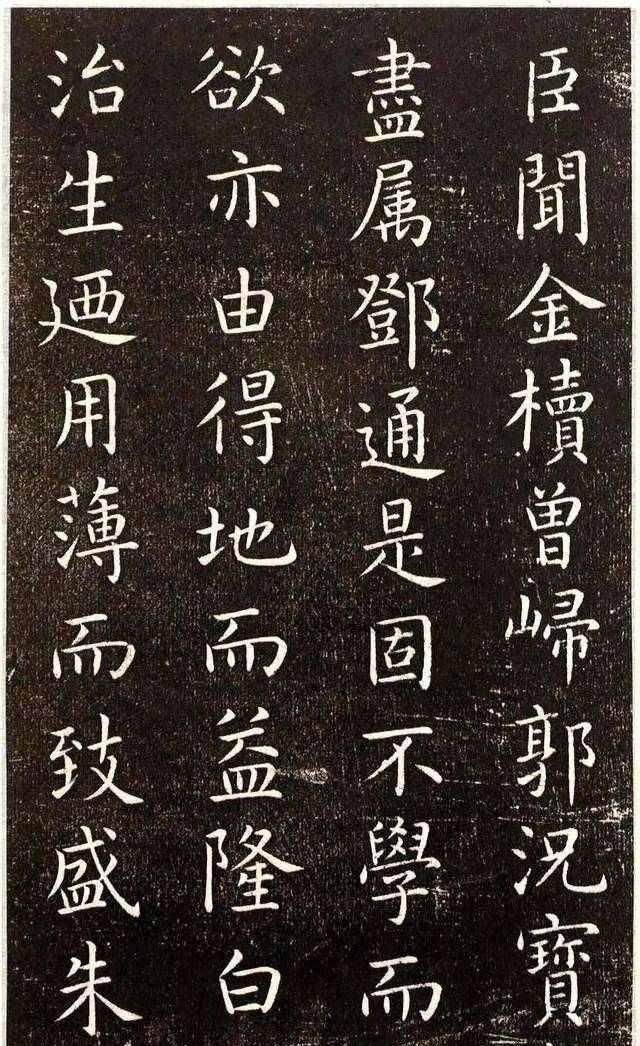 臣聞金櫝曾㱕郭況寶
盡属鄧通是固不學而
欲亦由得地而益隆白
治生廼用薄而致盛朱